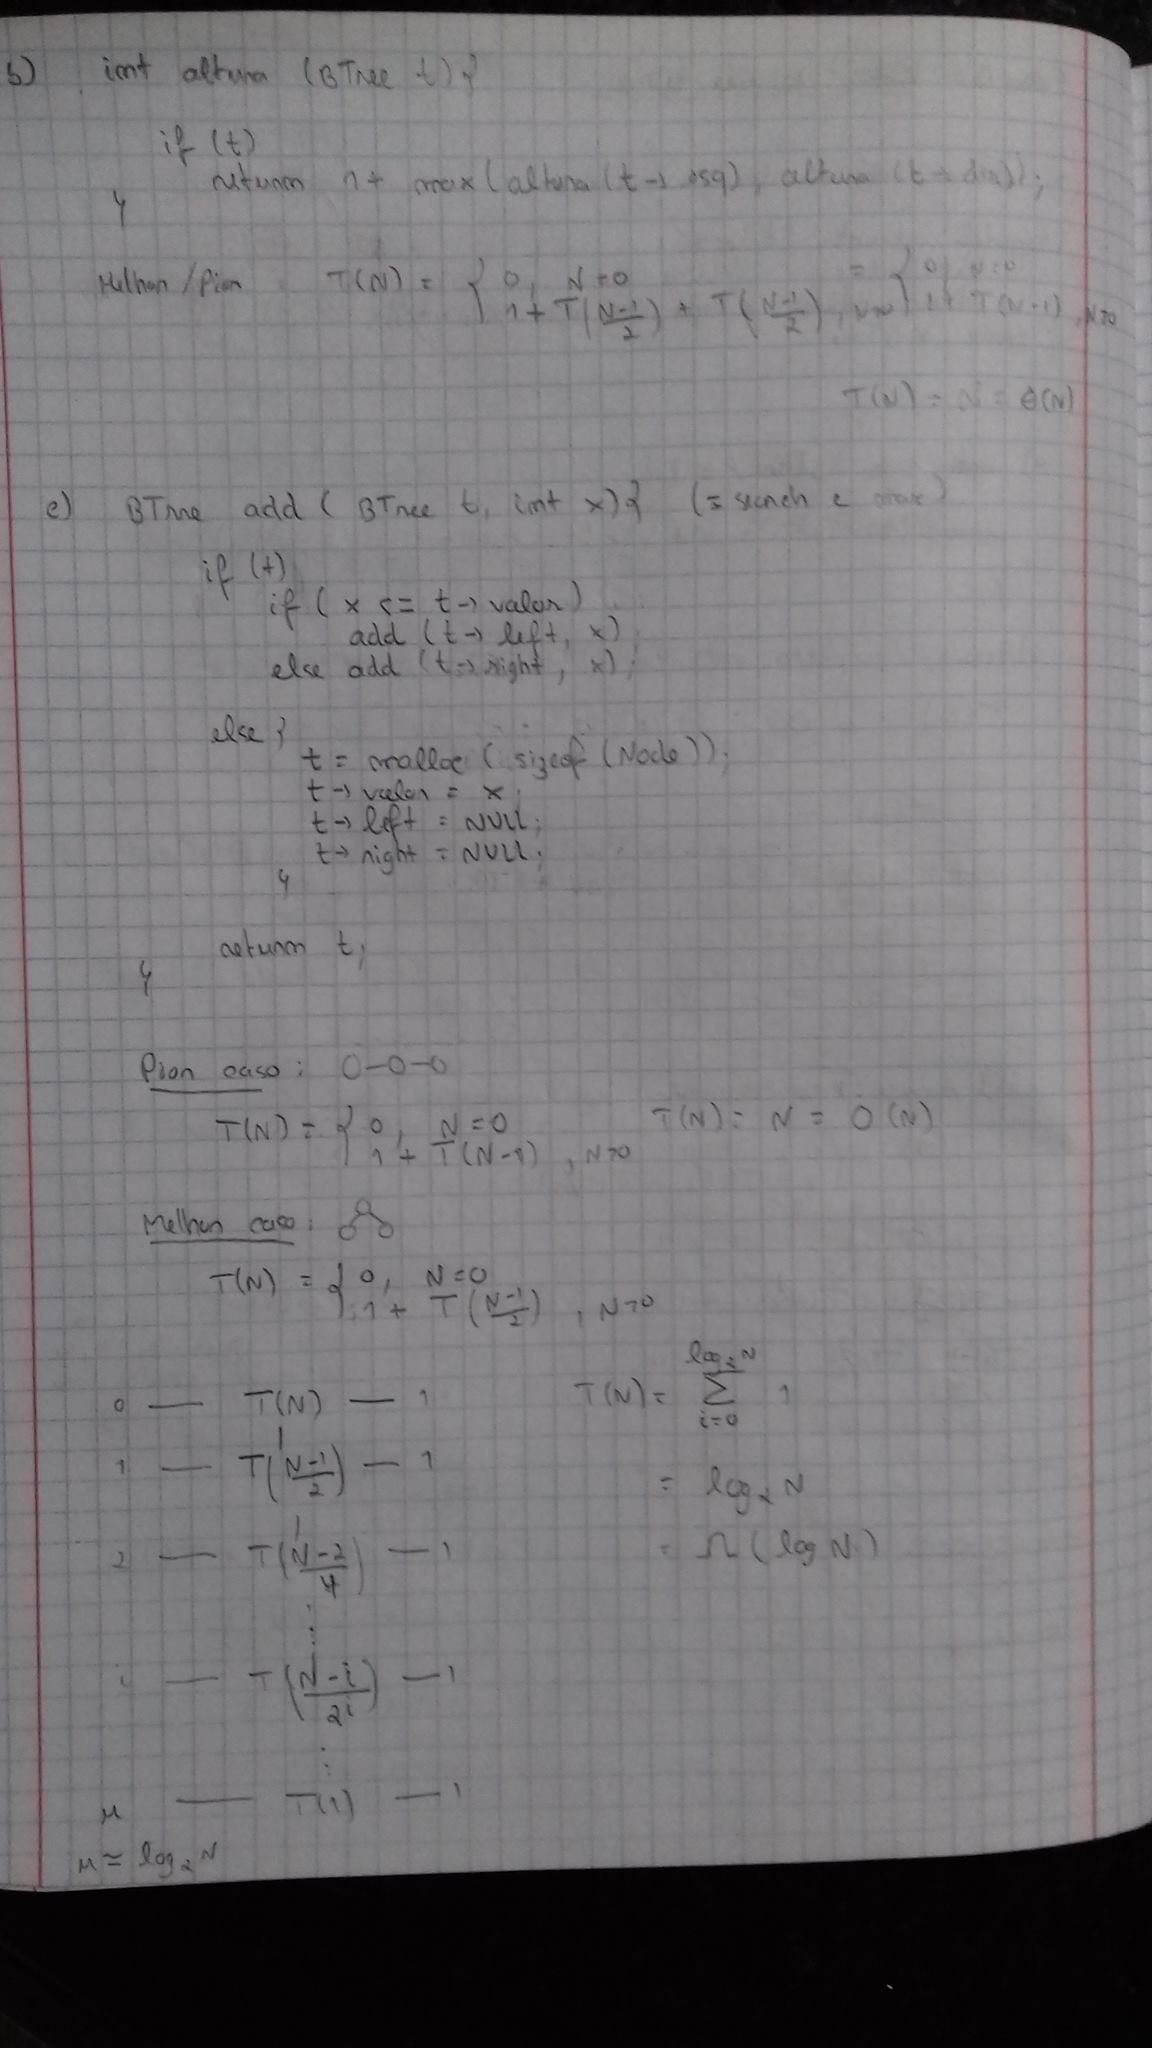 b) int altura (BTree t){
if (t)
return 1+ max(altura(t→esq), altura(t→dir));
}
Melhor/Pior T(N) = { 0, N=0 = { 0, N=0
1+ T(N-1/2) + T(N-1/2), N>0 1+ T(N-1), N>0
T(N) = N = Θ(N)
c) BTree add ( BTree t, int x){ (= search e max)
if (t)
if ( x <= t→valor)
add (t→left, x)
else add (t→right, x);
else {
t = malloc ( sizeof (Node));
t→valor = x;
t→left = NULL;
t→right = NULL;
}
return t;
}
Pior caso: O-O-O
T(N) = { 0, N=0 T(N) = N = O(N)
1 + T(N-1), N>0
Melhor caso:
T(N) = { 0, N=0
1 + T(N-1/2), N>0
log₂N
0 — T(N) — 1 T(N) = Σ 1
i=0
1 — T(N-1/2) — 1
= log₂ N
2 — T(N-2/4) — 1 = Ω(log N)
⋮
i — T(N-i/2ⁱ) — 1
⋮
μ — T(1) — 1
μ ≃ log₂ N